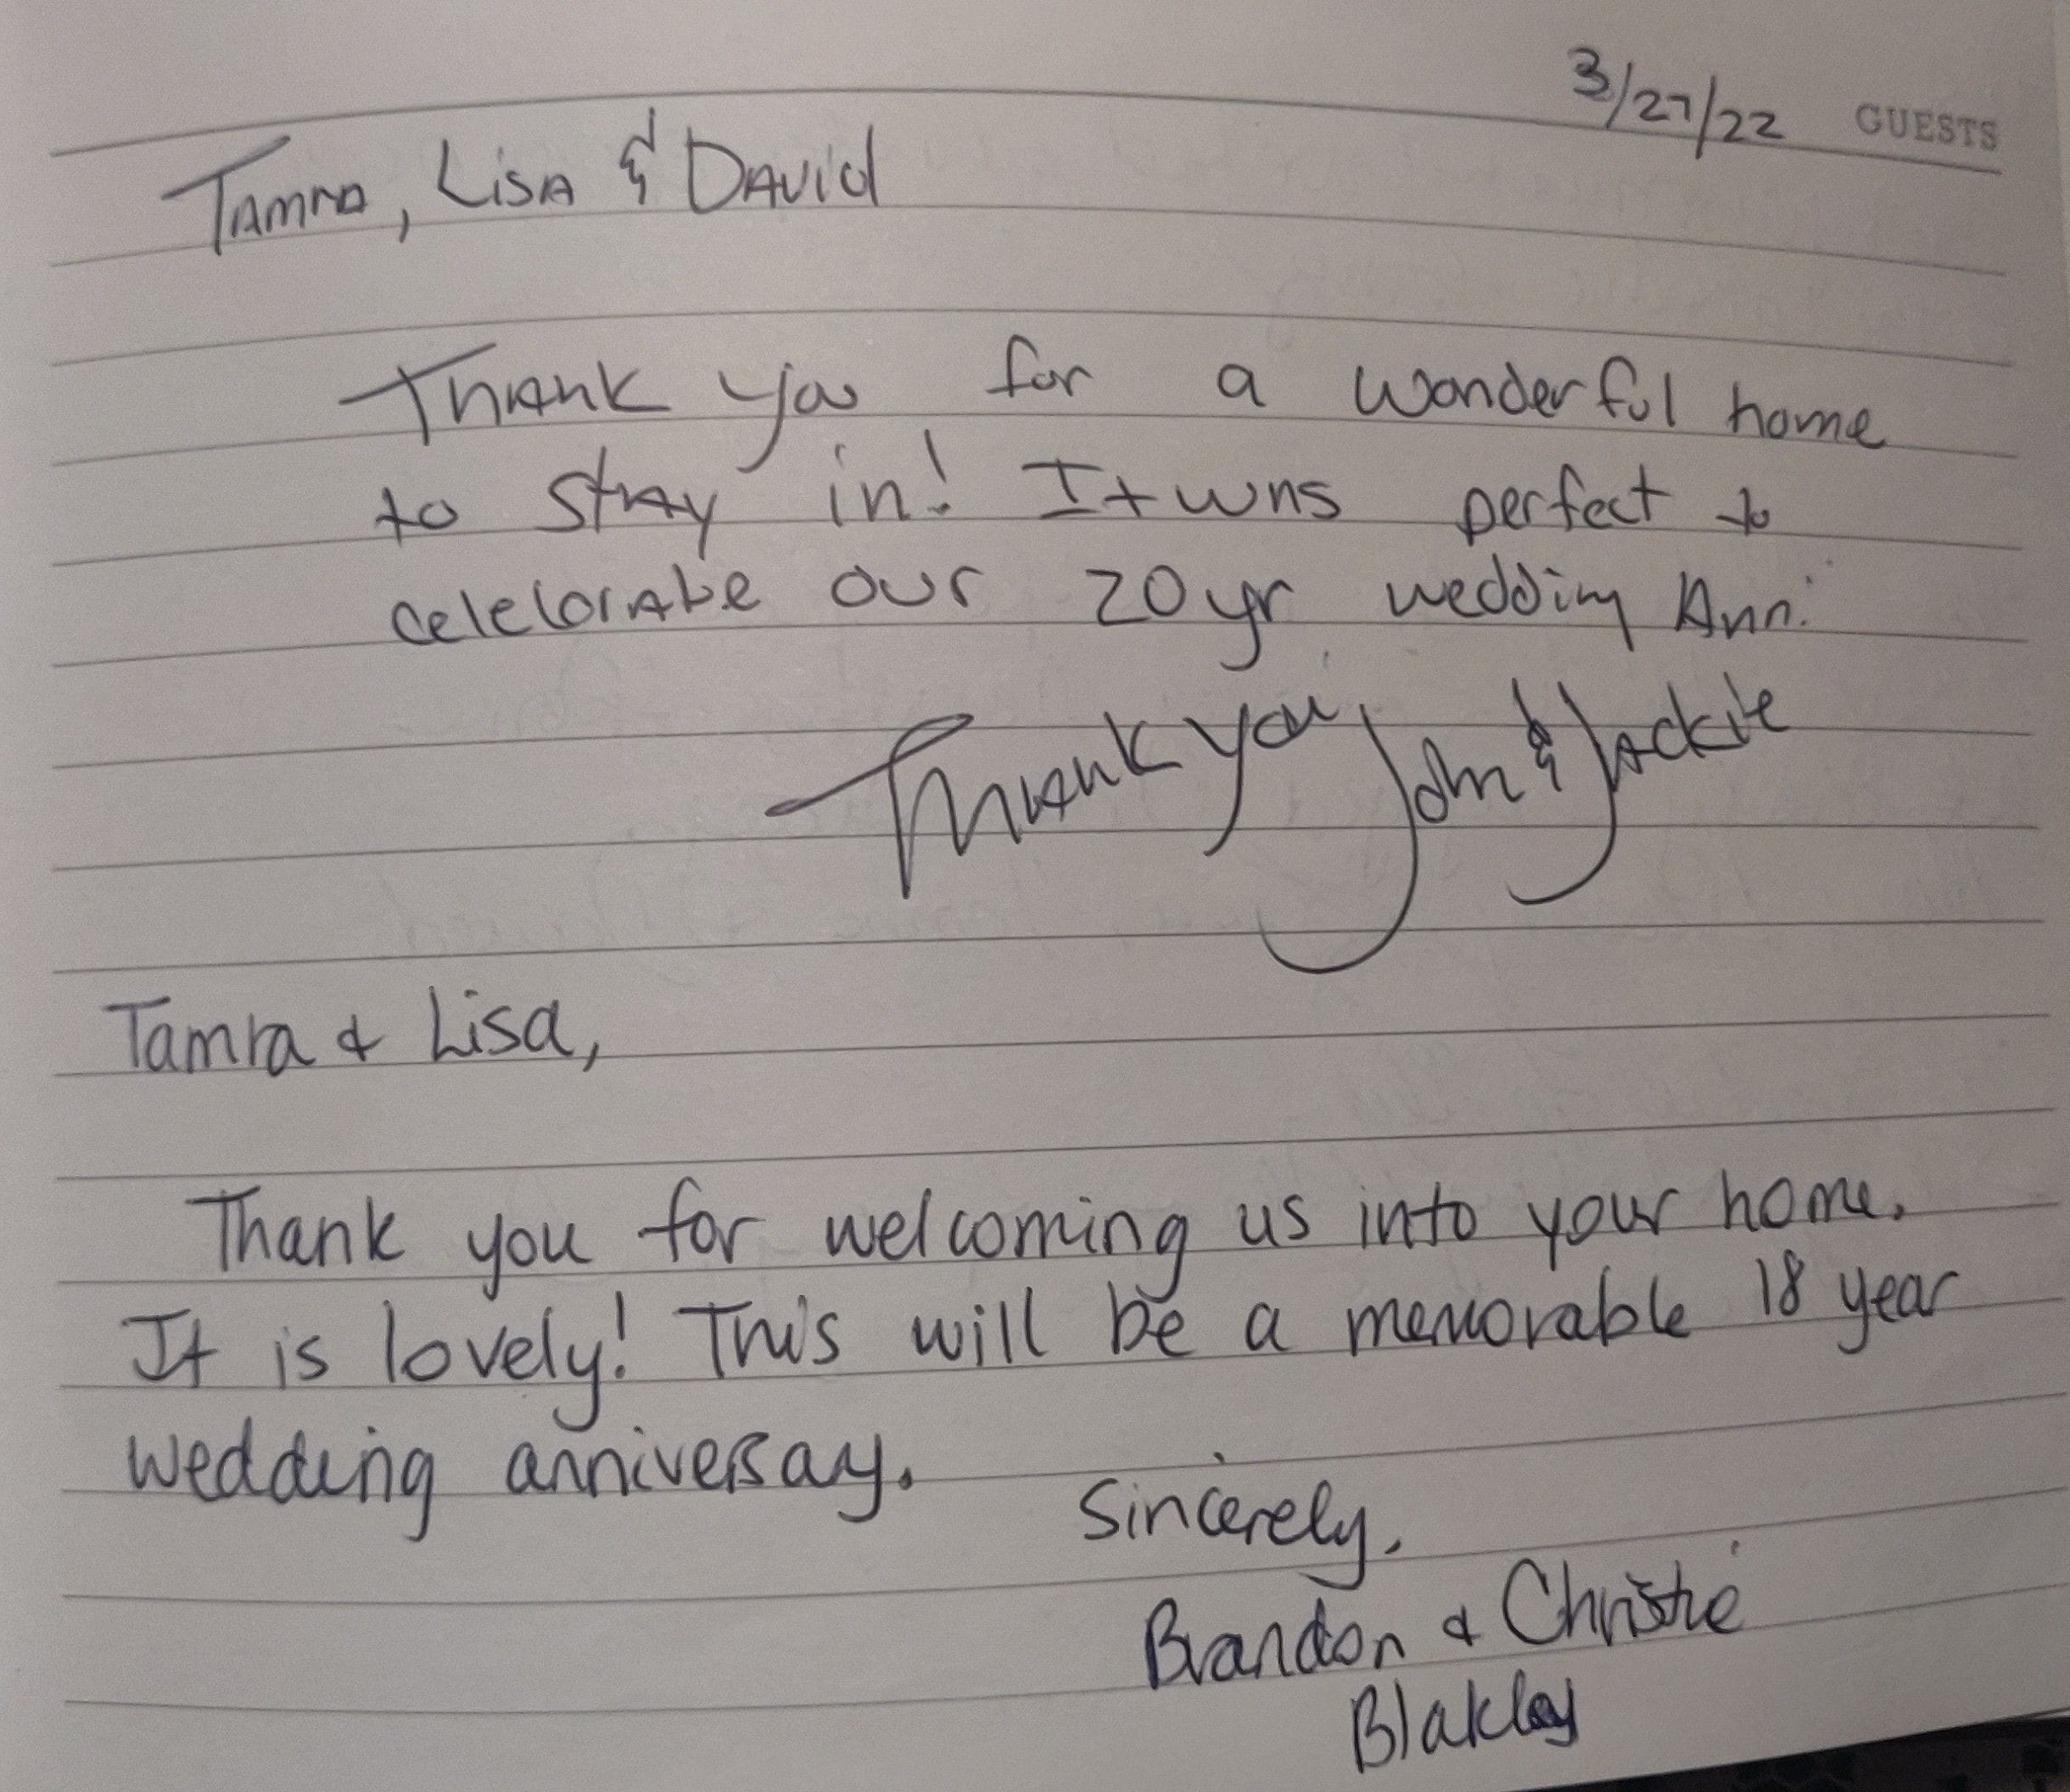 3/27/22 GUESTS
Tamra, Lisa & David
Thank you for a wonderful home
to stay in! It was perfect to
celebrate our 20 yr wedding Ann.
Thank you, John & Jackie
Tamra & Lisa,
Thank you for welcoming us into your home.
It is lovely! This will be a memorable 18 year
wedding anniversay.
Sincerely,
Brandon & Christie
Blakley